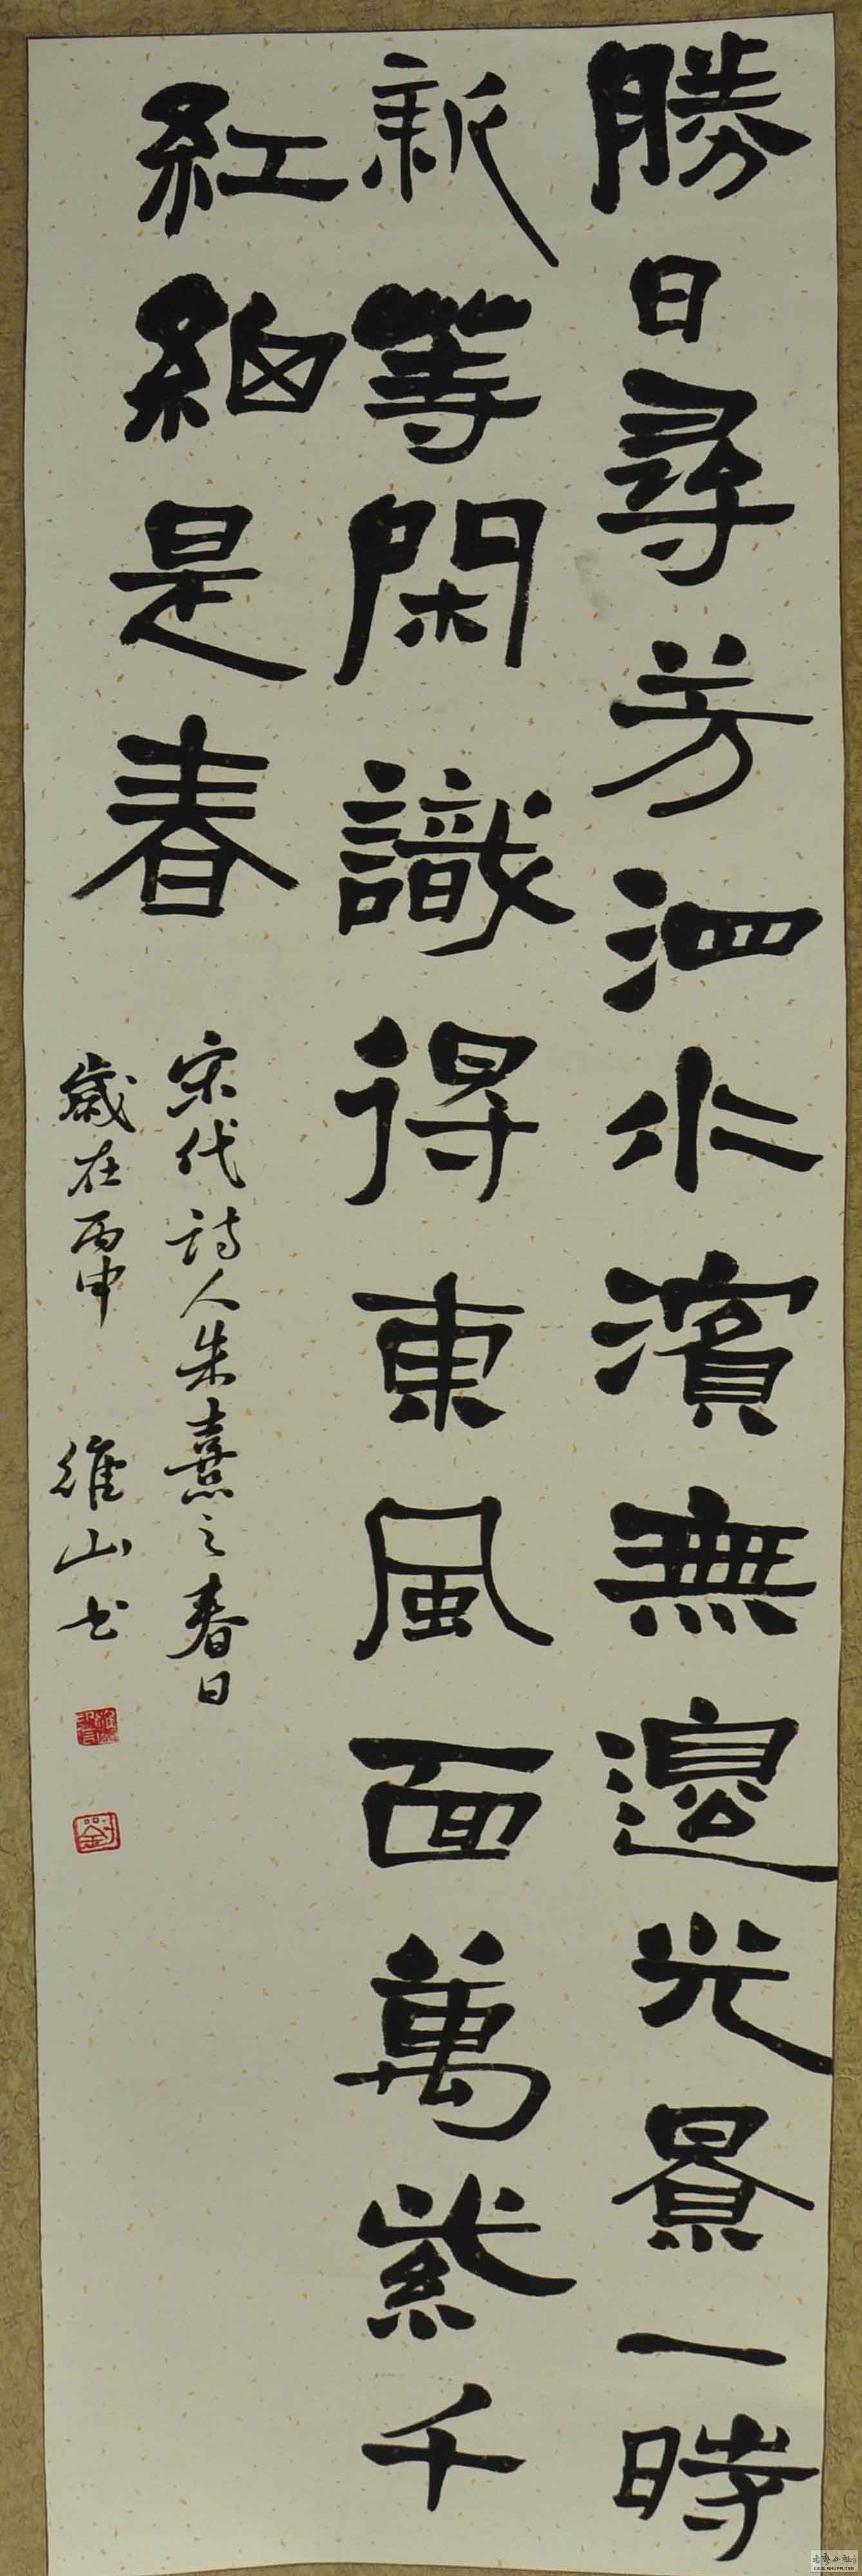 勝日尋芳泗水濱無邊光景一時
新等閑識得東風面萬紫千
紅總是春
宋代詩人朱熹之春日
歲在丙申 維山书